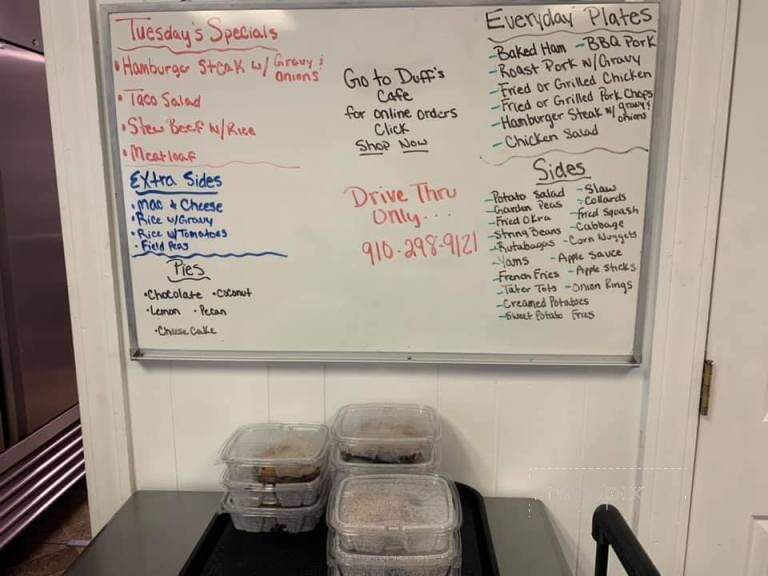 Tuesday's Specials
• Hamburger Steak w/ Gravy &
Onions
• Taco Salad
• Stew Beef w/ Rice
• Meatloaf
Extra Sides
• Mac & Cheese
• Rice w/ Gravy
• Rice w/ Tomatoes
• Field Peas
Pies
• Chocolate • Coconut
• Lemon • Pecan
• Cheese Cake
Go to Duff's
Cafe
for online orders
Click
Shop Now
Drive Thru
Only...
910-298-9121
Everyday Plates
- Baked Ham - BBQ Pork
- Roast Pork w/ Gravy
- Fried or Grilled Chicken
- Fried or Grilled Pork Chops
- Hamburger Steak w/ gravy &
onions
- Chicken Salad
Sides
- Potato Salad - Slaw
- Garden Peas - Collards
- Fried Okra - Fried Squash
- String Beans - Cabbage
- Rutabagas - Corn Nuggets
- Yams - Apple Sauce
- French Fries - Apple Sticks
- Tater Tots - Onion Rings
- Creamed Potatoes
- Sweet Potato Fries